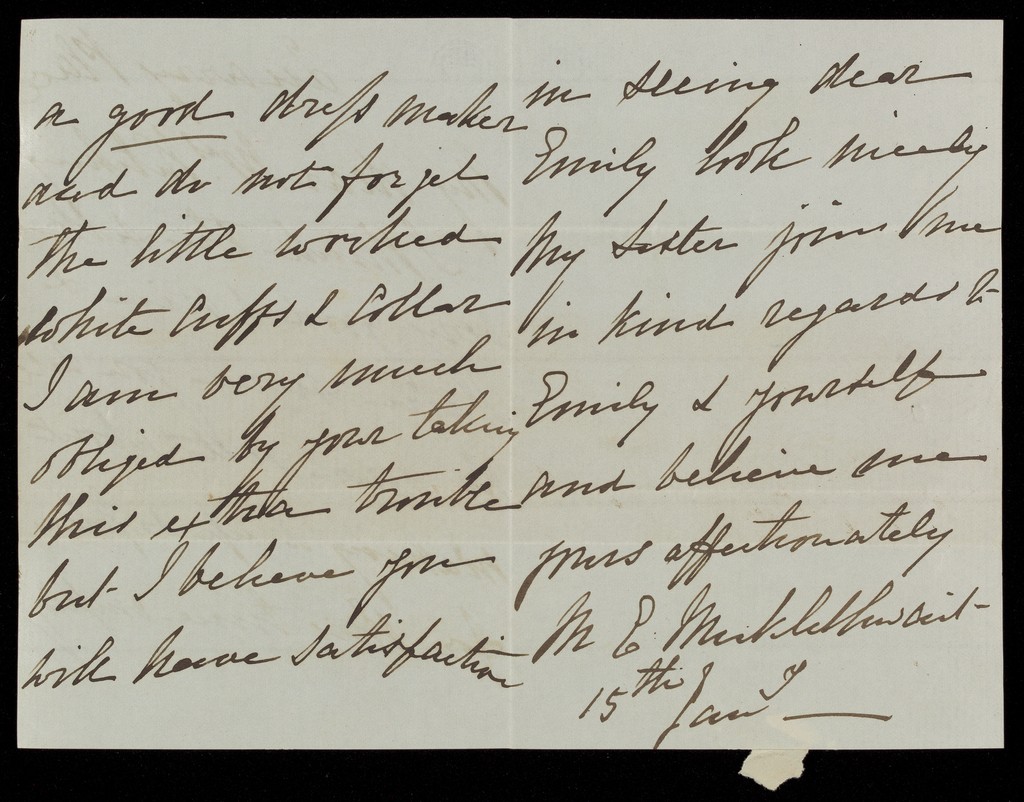 a good dress maker
and do not forget
the little worked
white Cuffs & Collar
I am very much
obliged by your taking
this extra trouble
but I believe you
will have satisfaction
in seeing dear
Emily look nicely
My Sister joins me
in kind regards to
Emily & yourself
and believe me
yours affectionately
M E Micklethwait
15th Jany